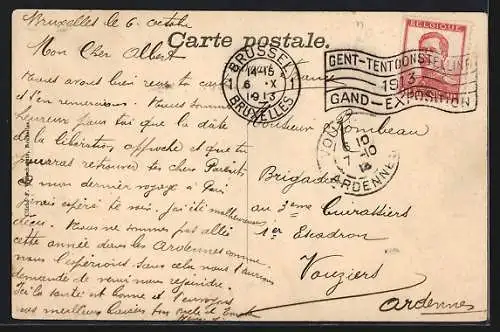 Bruxelles le 6 octobre
Carte postale.
Mon Cher Albert
Nous avons bien reçu ta carte
et t'en remercions. Nous sommes
heureux pour toi que la date
de la libération approche et que tu
pourras retrouver tes chers Parents
mon dernier voyage à Paris
j'avais espéré te voir. J'ai été malheureusement
déçu. Nous ne sommes pas allé
cette année dans les Ardennes comme
nous l'espérions sans cela nous t'aurions
demandé de venir nous rejoindre.
Ici la santé est bonne et t'envoyons
nos meilleurs baisers
BELGIQUE
BRUSSEL
14-15
1 1
6 X
1913
BRUXELLES
GENT-TENTOONSTELLING
1913
GAND-EXPOSITION
France
Monsieur Rombeau
VOUZ
10
7 -10
13
ARDENNES
Brigadier
au 3ème Cuirassiers
1er Escadron
Vouziers
Ardennes